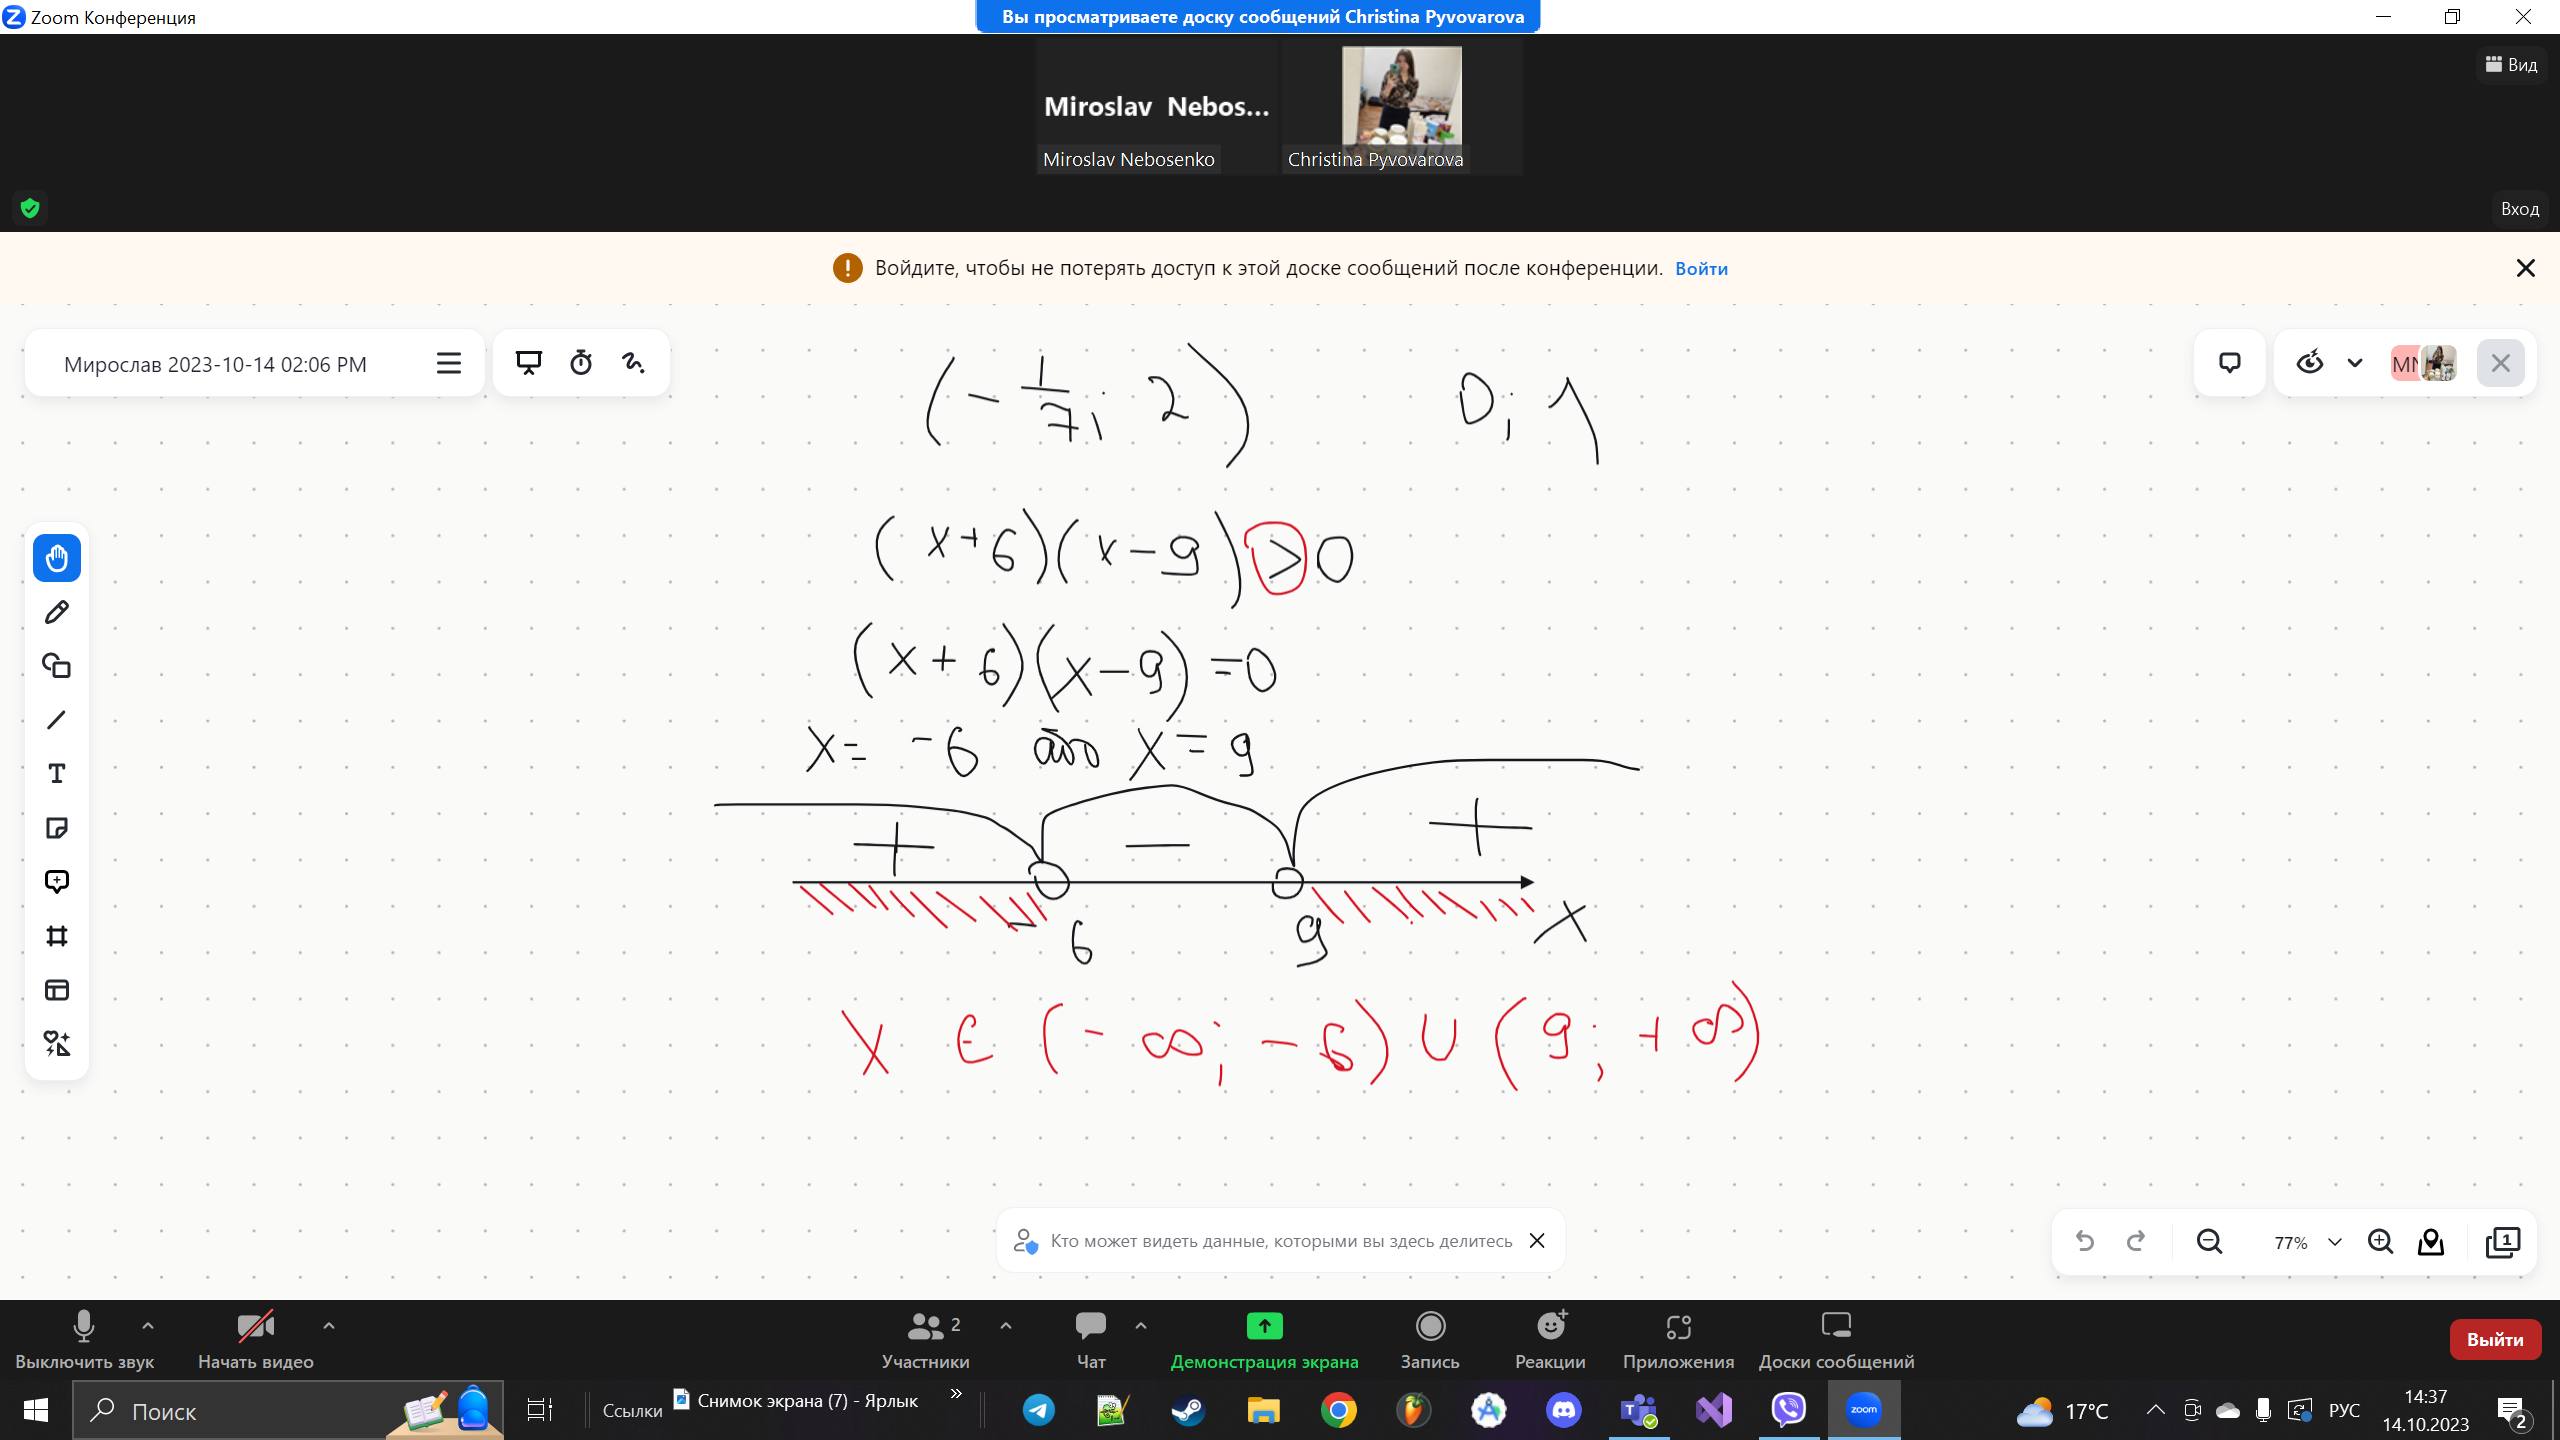 Zoom Конференция
Вы просматриваете доску сообщений Christina Pyvovarova
Вид
Miroslav Nebos...
Miroslav Nebosenko
Christina Pyvovarova
Вход
Войдите, чтобы не потерять доступ к этой доске сообщений после конференции. Войти
Мирослав 2023-10-14 02:06 PM
(-1/7; 2)
0; 1
(x+6)(x-9)>0
(x+6)(x-9)=0
x= -6 або x=9
+ - +
-6 9 x
x ∈ (-∞; -6) ∪ (9; +∞)
Кто может видеть данные, которыми вы здесь делитесь
77%
1
2
Выключить звук
Начать видео
Участники
Чат
Демонстрация экрана
Запись
Реакции
Приложения
Доски сообщений
Выйти
Поиск
Ссылки
Снимок экрана (7) - Ярлык
»
zoom
17°C
РУС
14:37
14.10.2023
2